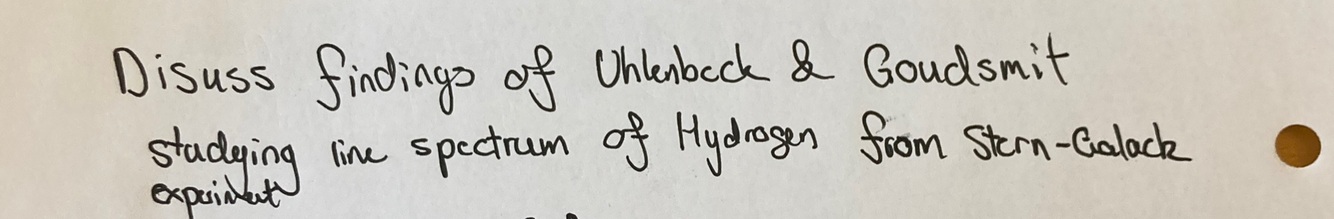 Disuss findings of Uhlenbeck & Goudsmit
studying line spectrum of Hydrogen from Stern-Galack
experiment